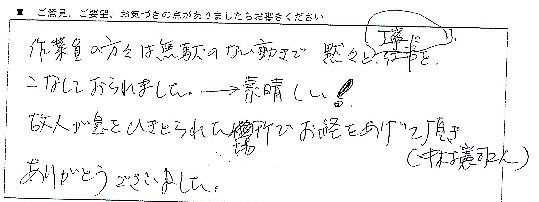 ■ ご意見、ご要望、お気づきの点がありましたらお書きください
作業員の方々は無駄のない動きで 黙々と丁寧に仕事を
こなしておられました。→素晴しい!
故人が息をひきとられた場所でお経をあげて頂き
ありがとうございました。